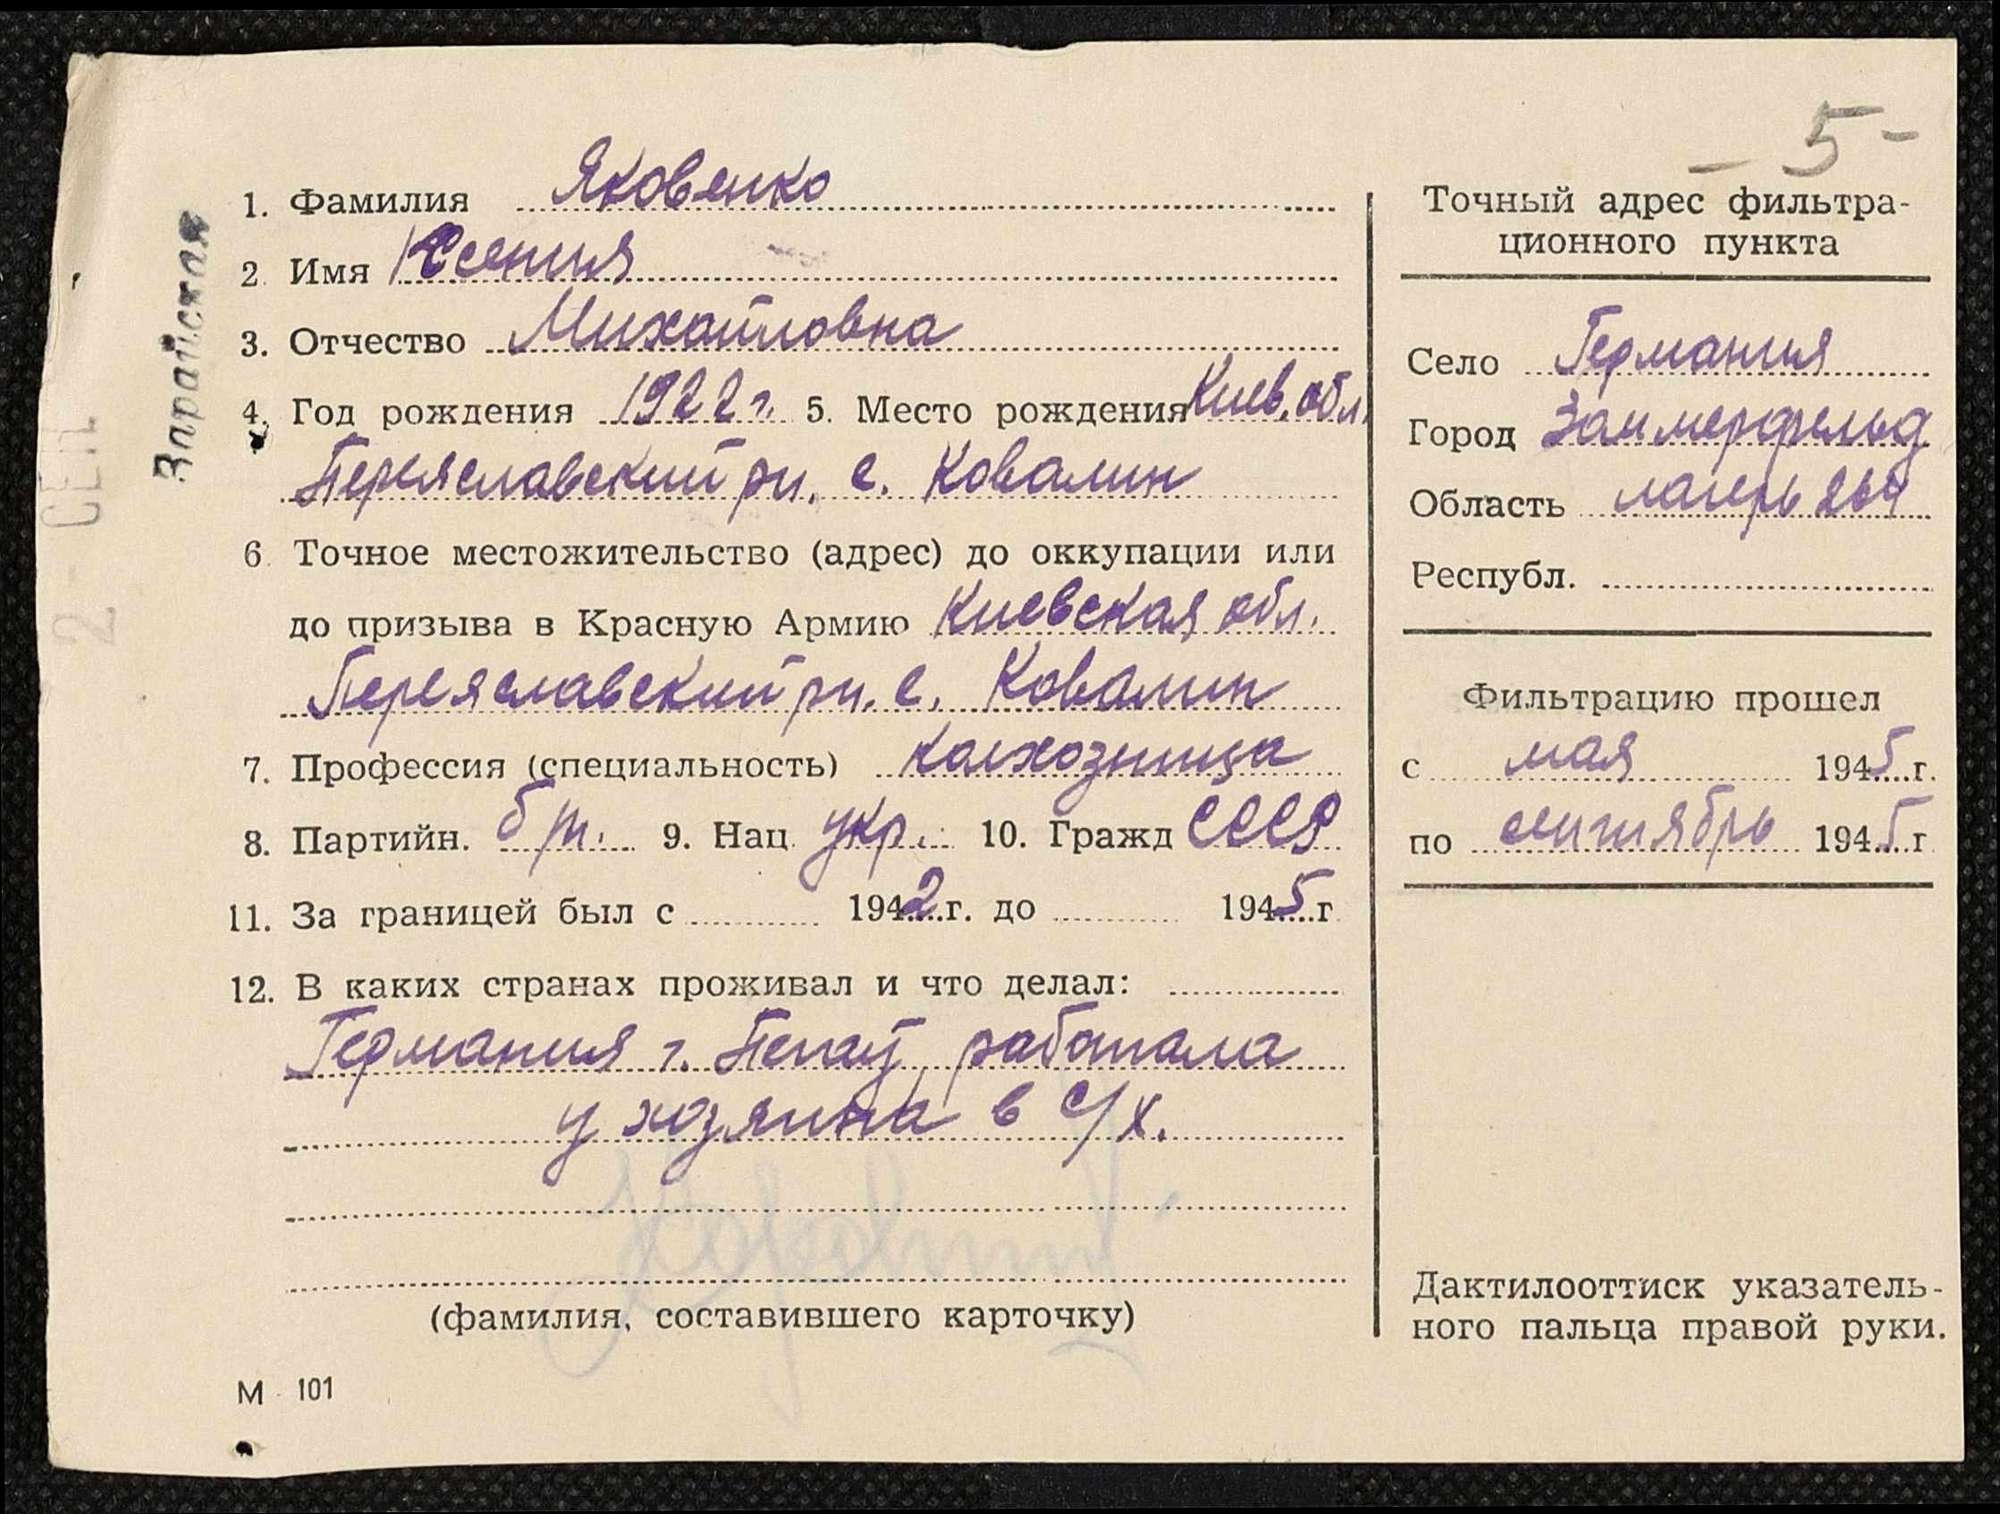 - 5 -
Зарайская
2 - СЕН
1. Фамилия Яковенко
2. Имя Ксения
3. Отчество Михайловна
4. Год рождения 1922 г. 5. Место рождения Киев. обл.
Переяславский рн. с. Ковалин
6. Точное местожительство (адрес) до оккупации или
до призыва в Красную Армию Киевская обл.
Переяславский рн. с. Ковалин
7. Профессия (специальность) колхозница
8. Партийн. б/п. 9. Нац. укр. 10. Гражд СССР
11. За границей был с 1942 г. до 1945 г
12. В каких странах проживал и что делал:
Германия г. Пегау работала
у хозяина в с/х.
(фамилия, составившего карточку)
М 101
Точный адрес фильтра-
ционного пункта
Село Германия
Город Заммерфельд
Область лагерь 264
Республ.
Фильтрацию прошел
с мая 1945 г.
по сентябрь 1945 г
Дактилооттиск указатель-
ного пальца правой руки.